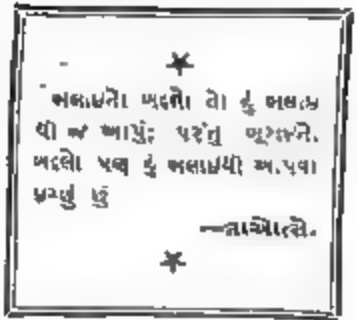 ભલાઇનો બદલો તો હું ભલાઇ
થી જ આપું; પરંતુ બૂરાઇને.
બદલો પણ હું ભલાઇથી આપવા
ઇચ્છું છું
—લાઓત્સે.